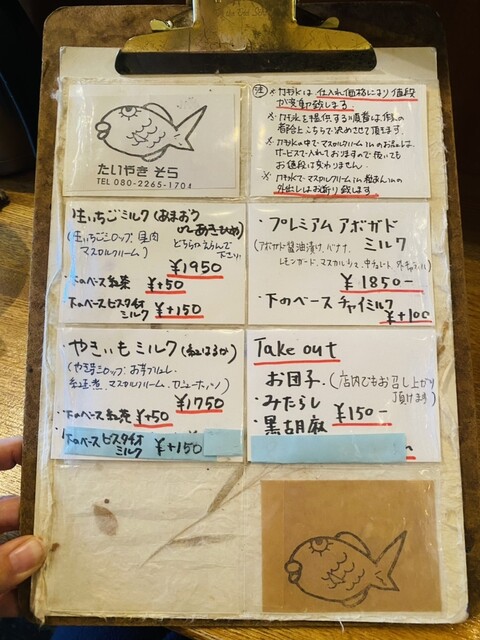 たいやき そら
TEL 080-2265-1704
注 ※かき氷は 仕入れ価格により値段
が変動致します。
※かき氷を提供する順番は、作る人の
都合上こちらで決めさせて頂きます。
※かき氷の中で マスカルクリームinのお品は
サービスで入れておりますので 抜いても
お値段は変わりません。
※かき氷で、マスカルクリームin 餡あんinの
外出しはお断り致します
生いちごミルク(あまおう
or あきひめ)
(生いちごシロップ、果肉
マスカルクリーム)
どちらかえらんで
下さい
¥1950
・下のベース紅茶 ¥+50
・下のベースピスタチオ
ミルク ¥+150
・プレミアム アボガド
ミルク
(アボガド醤油漬け、バナナ、
レモンガード、マスカル
¥1850-
・下のベース チャイミルク
¥+100
・やきいもミルク(紅はるか)
(やき芋シロップ、お芋
マスカルクリーム
¥1750
・下のベース紅茶 ¥+50
・下のベース ピスタチオ
ミルク ¥+150
Take out
お団子 (店内でもお召し上がり
頂けます)
・みたらし
・黒胡麻 ¥150-